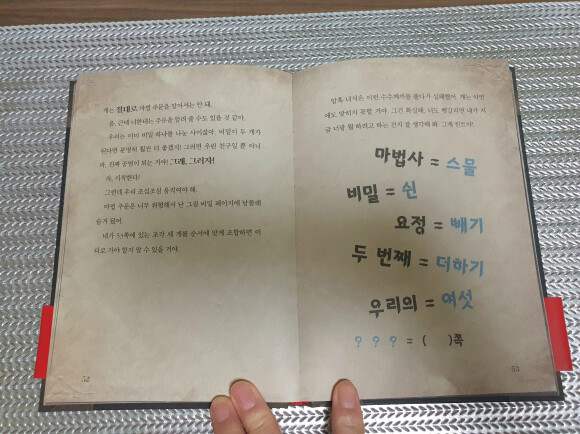 걔는 절대로 마법 주문을 말아서는 안 돼.
음, 근데 너한테는 주문을 알려 줄 수도 있을 것 같아.
우리는 이미 비밀 하나를 나눈 사이잖아. 비밀이 두 개가
된다면 분명히 훨씬 더 좋겠지! 그러면 우린 친구일 뿐 아니
라, 진짜 공범이 되는 거야! 그래, 그러자!
자, 시작한다!
그런데 우리 조심조심 움직여야 해.
마법 주문은 너무 위험해서 난 그걸 비밀 페이지에 낱말에
숨겨 뒀어.
네가 53쪽에 있는 조각 세 개를 순서에 맞게 조합하면 어
디로 가야 할지 알 수 있을 거야.
52
암흑 녀석은 이런 수수께끼를 풀다가 실패했어. 걔는 이번
에도 맞히지 못할 거야. 그건 확실해. 너도 헷갈리면 내가 지
금 너랑 뭘 하려고 하는 건지 잘 생각해 봐. 그게 힌트야!
마법사 = 스물
비밀 = 쉰
요정 = 빼기
두 번째 = 더하기
우리의 = 여섯
? ? ? = ( )쪽
53